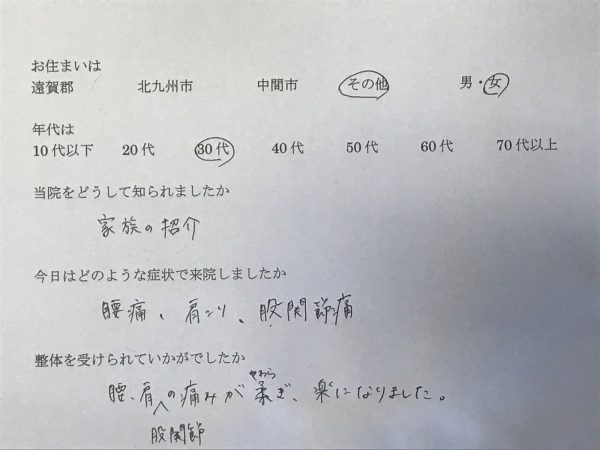 お住まいは
遠賀郡 北九州市 中間市 その他 男・女
年代は
10代以下 20代 30代 40代 50代 60代 70代以上
当院をどうして知られましたか
家族の紹介
今日はどのような症状で来院しましたか
腰痛、肩こり、股関節痛
整体を受けられていかがでしたか
やわら
腰、肩の痛みが柔ぎ、楽になりました。
股関節